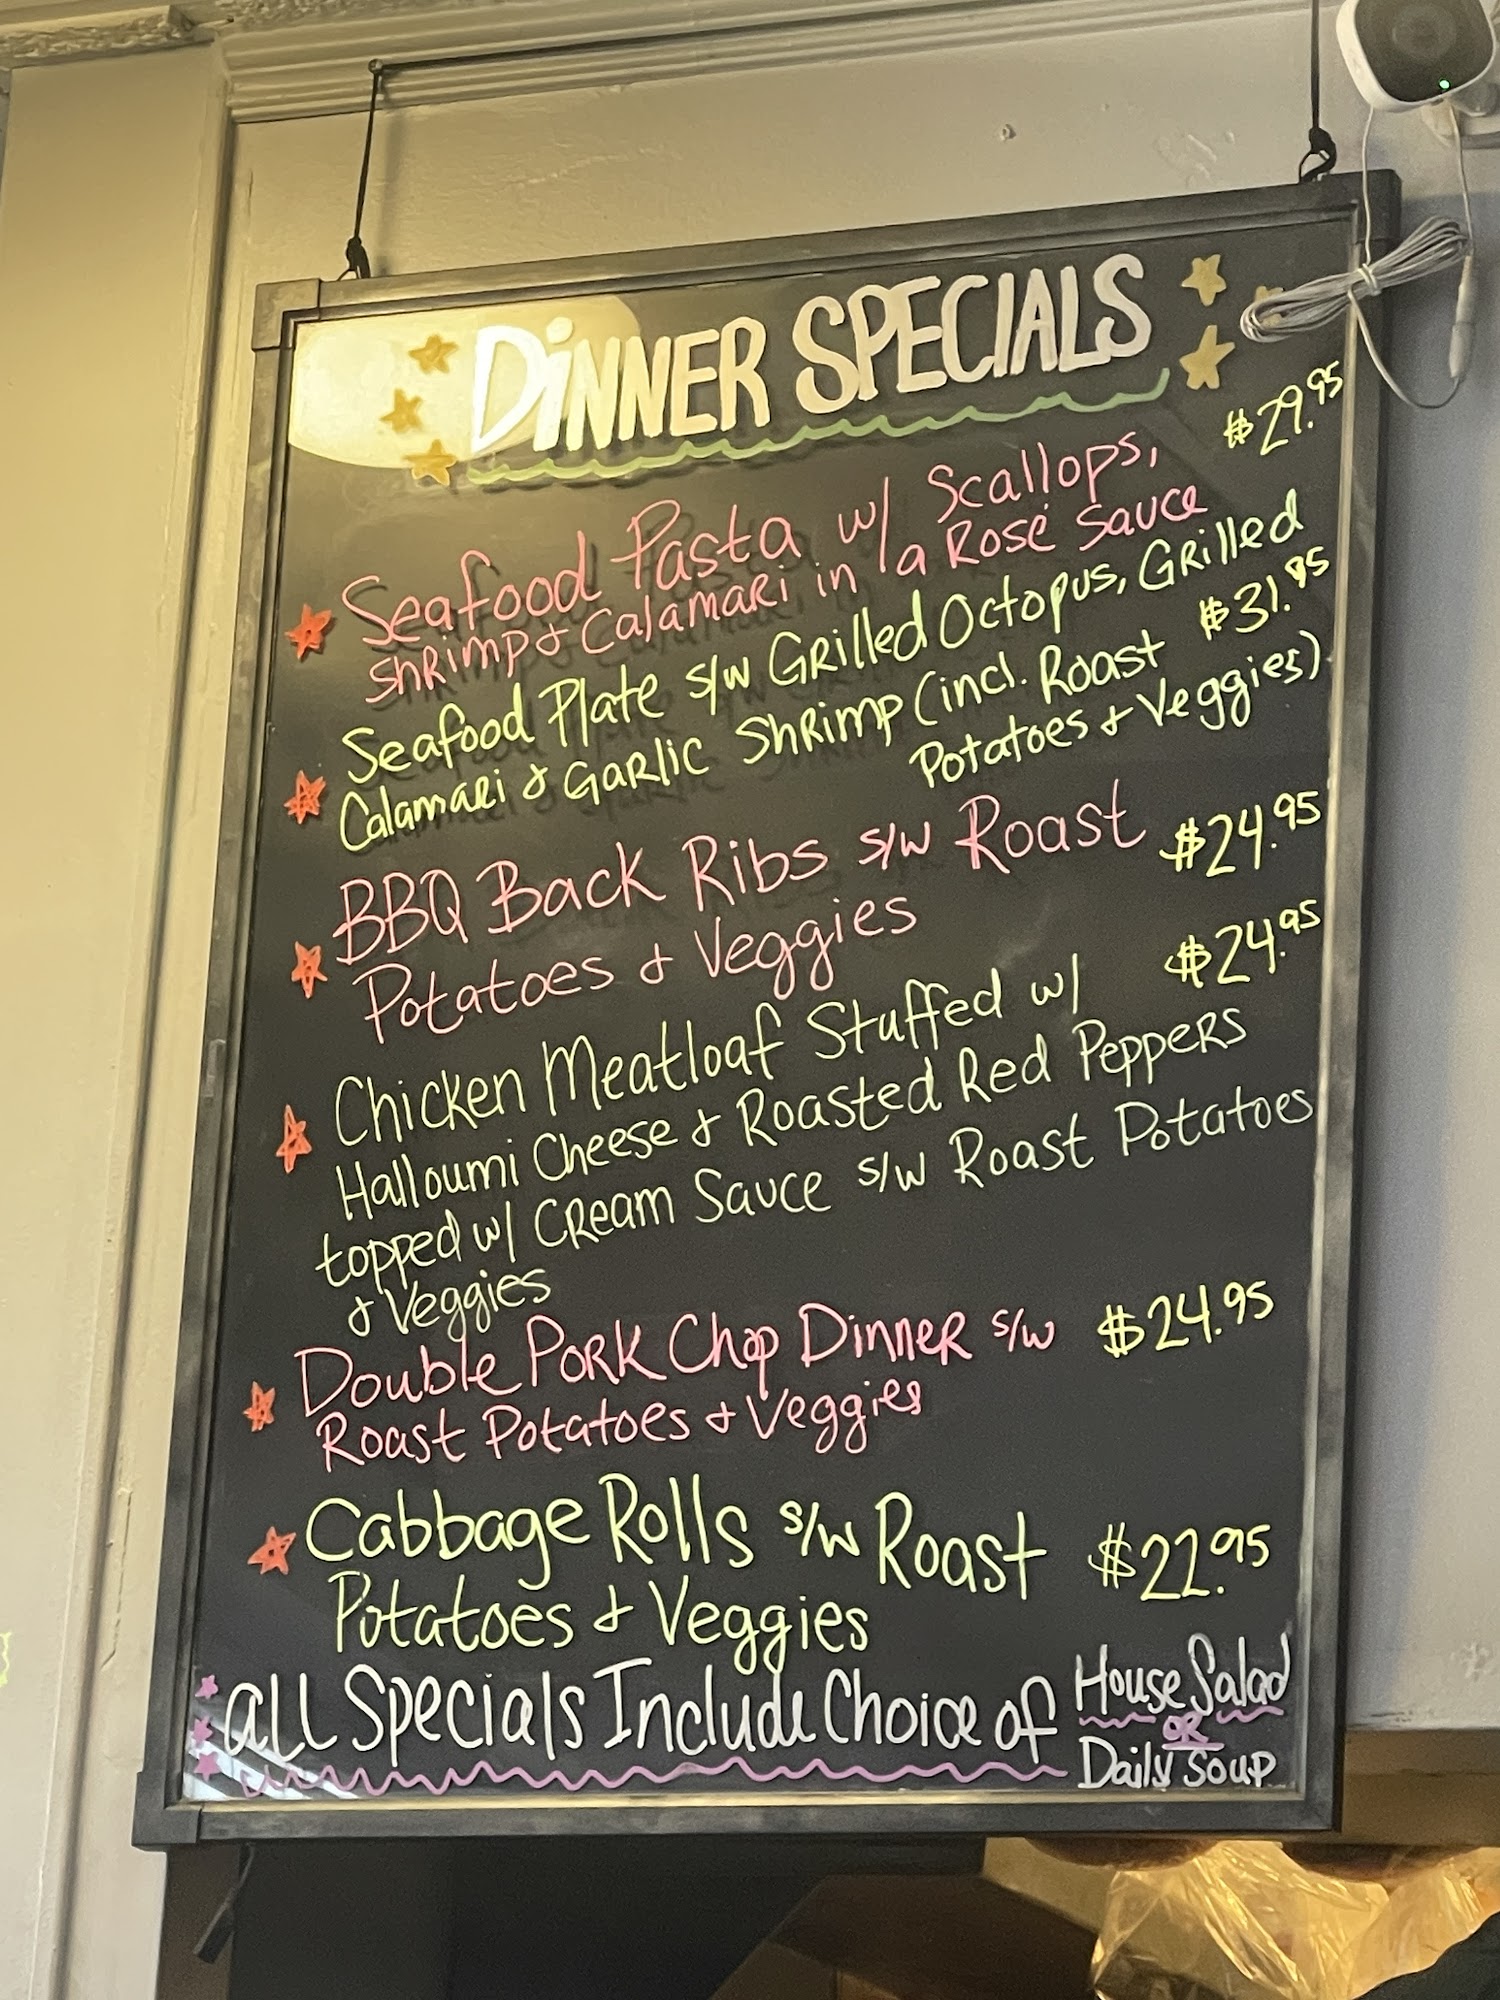 DiNNER SPECIALS
$29.95
Seafood Pasta w/ Scallops,
Shrimp & Calamari in a Rosé Sauce
Seafood Plate s/w Grilled Octopus, Grilled
Calamari & Garlic Shrimp (incl. Roast $31.95
Potatoes & Veggies)
BBQ Back Ribs s/w Roast $24.95
Potatoes & Veggies
Chicken Meatloaf Stuffed w/ $24.95
Halloumi Cheese & Roasted Red Peppers
topped w/ Cream Sauce s/w Roast Potatoes
& Veggies
Double Pork Chop Dinner s/w $24.95
Roast Potatoes & Veggies
Cabbage Rolls s/w Roast $22.95
Potatoes & Veggies
all Specials Include Choice of House Salad
OR
Daily Soup